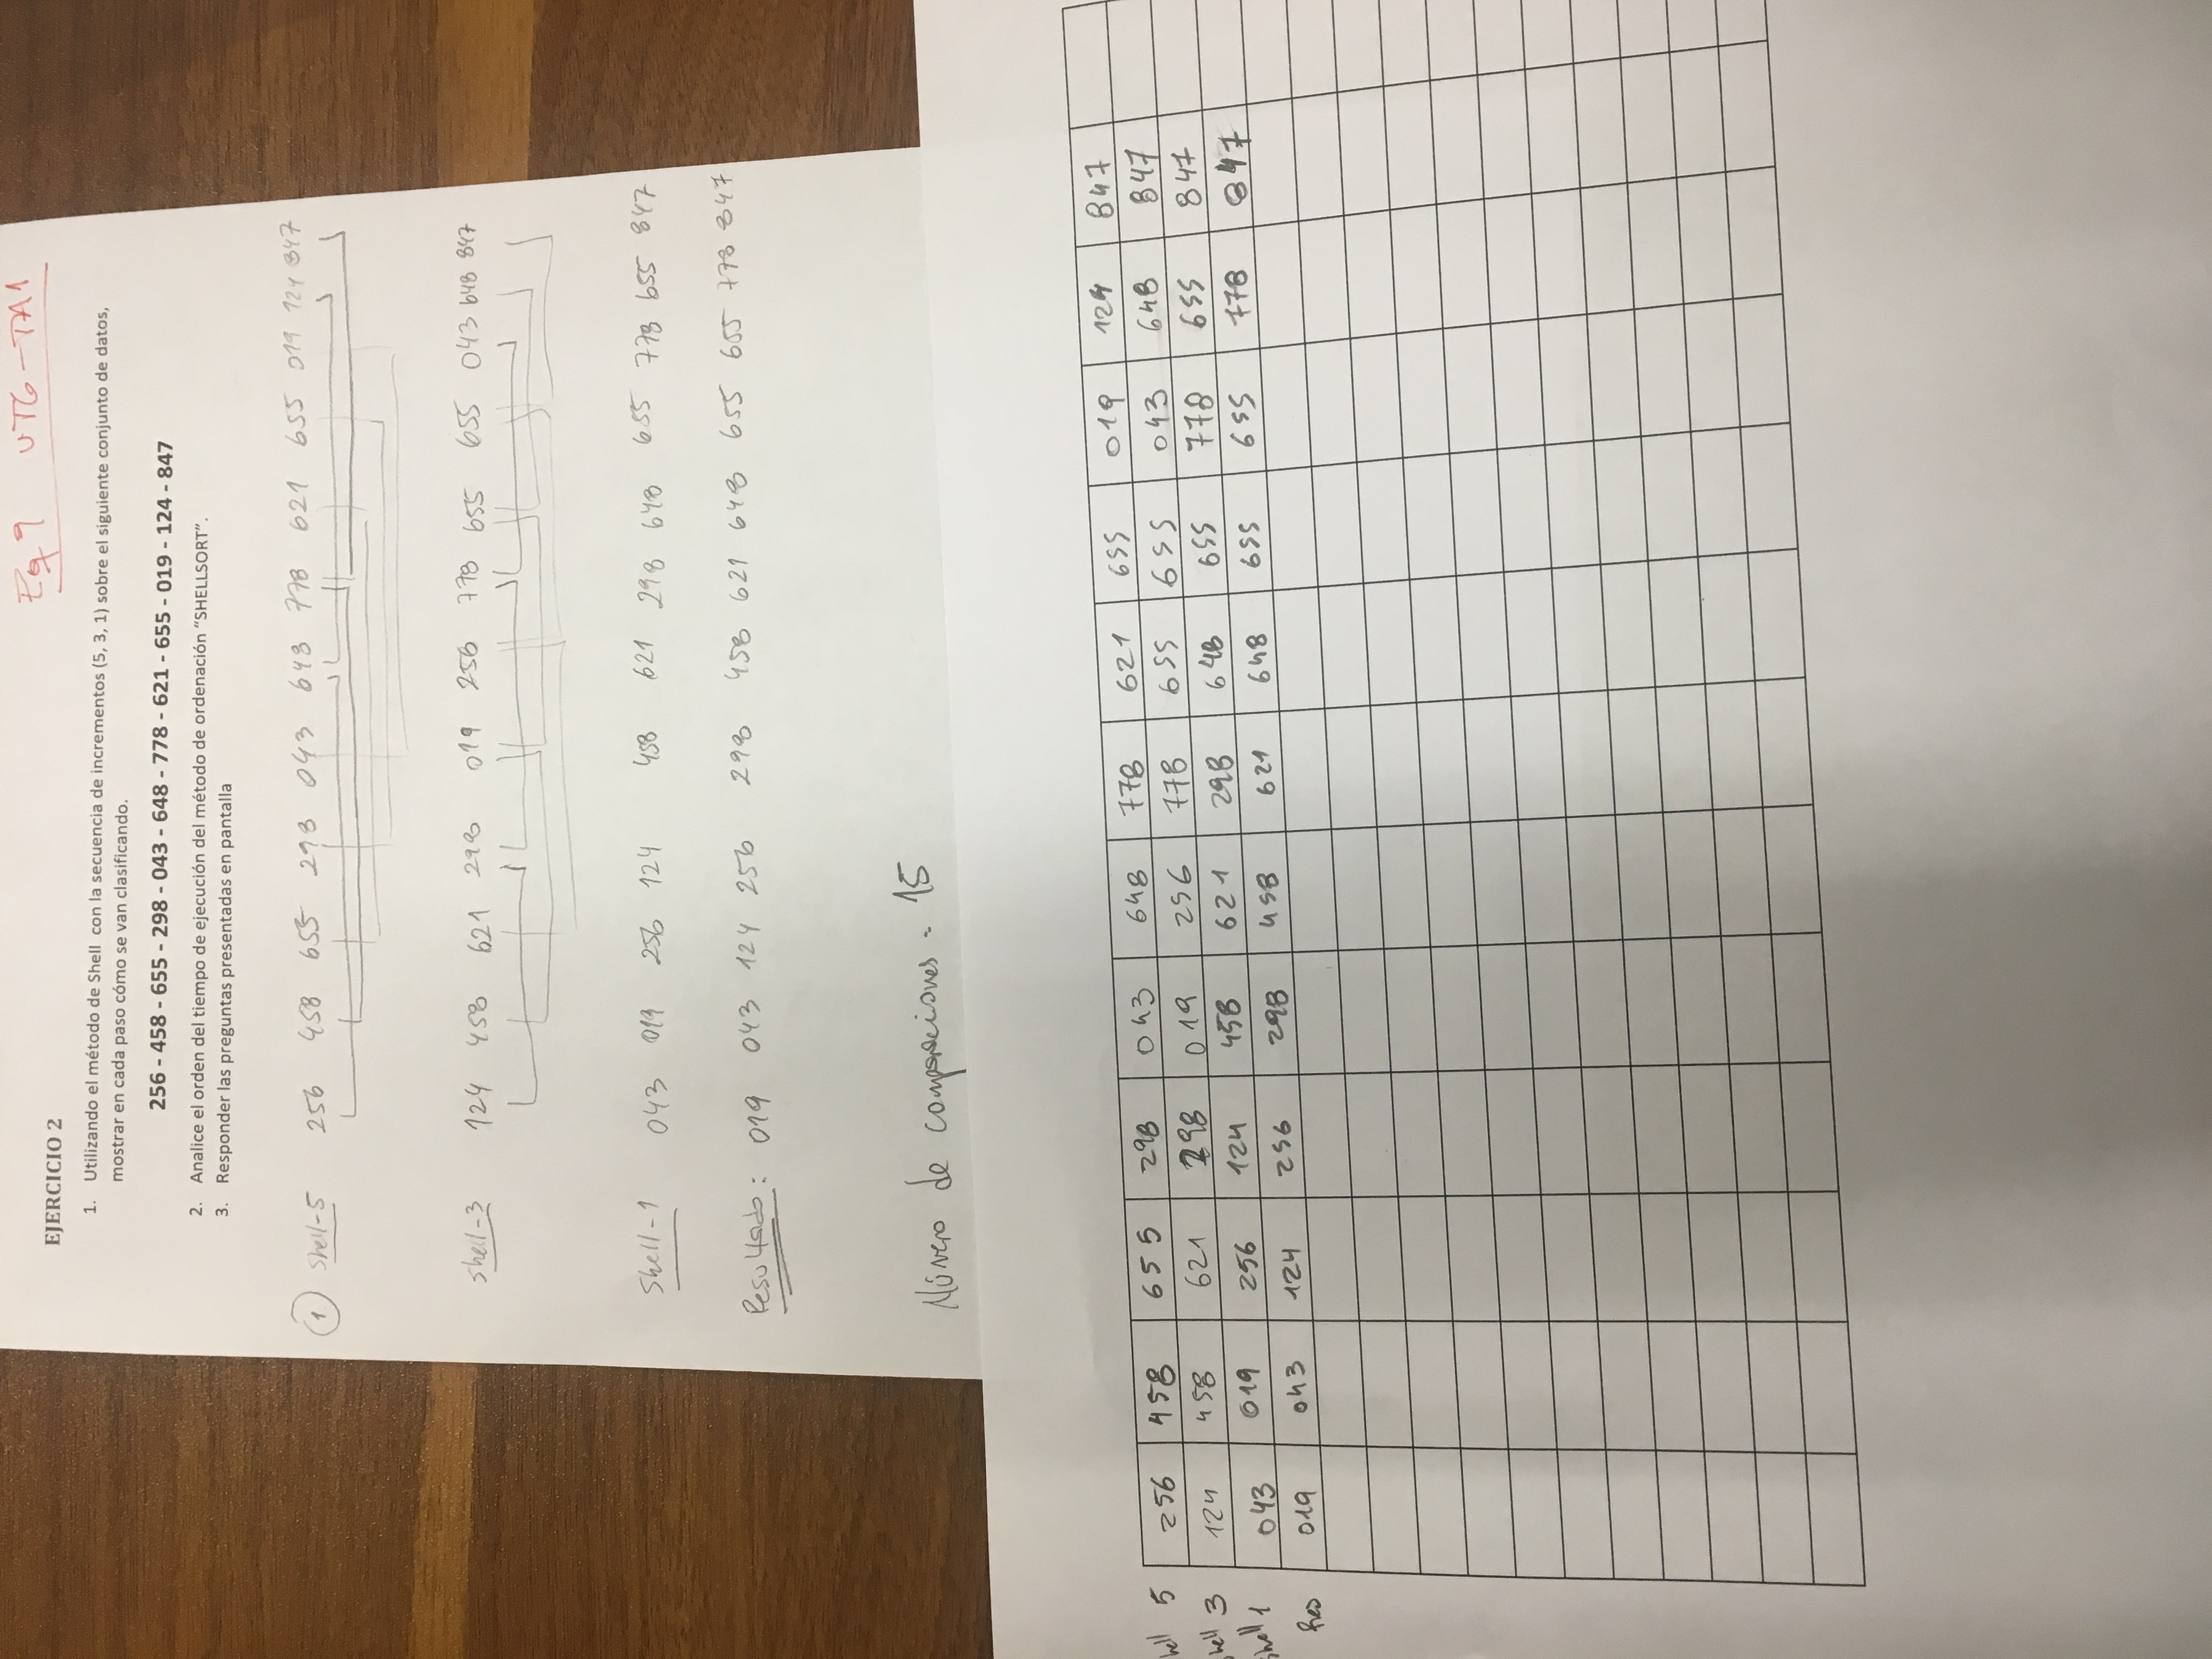 Eq 9 UT6-TA1
EJERCICIO 2
1. Utilizando el método de Shell con la secuencia de incrementos (5, 3, 1) sobre el siguiente conjunto de datos,
mostrar en cada paso cómo se van clasificando.
256 - 458 - 655 - 298 - 043 - 648 - 778 - 621 - 655 - 019 - 124 - 847
2. Analice el orden del tiempo de ejecución del método de ordenación “SHELLSORT”.
3. Responder las preguntas presentadas en pantalla
1 Shell-5 256 458 655 298 043 648 778 621 655 019 124 847
Shell-3 124 458 621 298 019 256 778 655 655 043 648 847
Shell-1 043 019 256 124 458 621 298 648 655 778 655 847
Resultado: 019 043 124 256 298 458 621 648 655 655 778 847
Número de comparaciones = 15
hell 5 256 458 655 298 043 648 778 621 655 019 124 847
shell 3 124 458 621 298 019 256 778 655 655 043 648 847
shell 1 043 019 256 124 458 621 298 648 655 778 655 847
Res 019 043 124 256 298 458 621 648 655 655 778 847